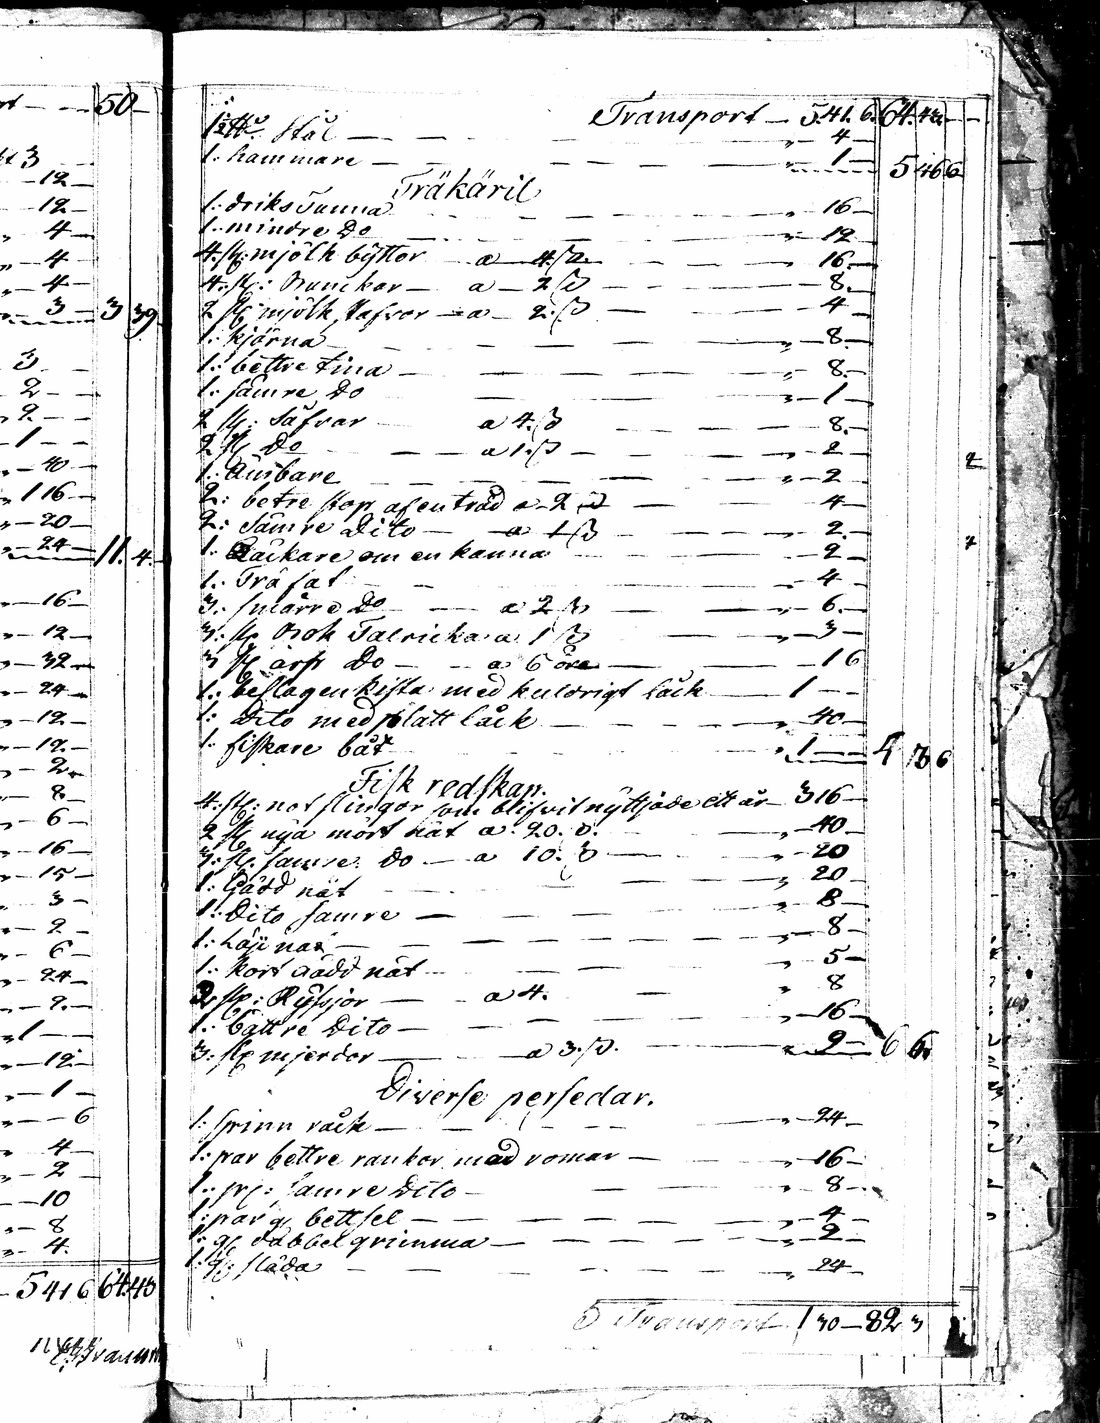 50 —
3
12 —
12 —
4 —
4 —
4 —
3 — 3 39
3
2 —
2 —
1 —
40
1 16 —
20
24 — 11. 4.
16 —
12 —
32 —
24 —
12 —
12. —
2.
8 —
6 —
16 —
15 —
3 —
2 —
6 —
24 —
2. —
1 —
12 —
1 —
6
4 —
2 —
10
8
4.
5 41 6 64.43
Transport — 5.41. 6. 64.43.
Stål — — — " 4 —
1. hammare — — — " 1 — 5 46 6
Träkäril
1. driks Tunna — — — " 16 —
1. mindre Do — — — " 12
4. st: mjölk byttor a 4. — — " 16. —
4. st: Bunckar — a — 2 — — " 8. —
2 st mjölk stafvor — a — 2. — — " 4 —
1. kjärna — — — " 8. —
1. bettre tina — — — " 8. —
1. sämre Do — — — " 1 —
2 st: Såfvar a 4. — — " 8.
2 st Do — — a 1. — — " 2 —
1. — — — " 2 —
2: betre stop af en träd a 2 — — " 4 —
2: Sämre Dito — a 1 — — " 2. —
1. om en kanna — — " 2 —
1. Trä fat — — — " 4 —
3: smärre Do — a 2 — — " 6. —
3: st. Talrickar a 1 — — " 3 —
3 st Do — a 6 öre — — 1 6
1. beslagen kista med kuldrigt låck — 1 — —
1. Dito med platt låck — — " 40 —
1. fiskare båt — — " 1 — — 4 6
Fisk redskap.
4. st: not slingor som blifvit nyttjade ett år — 3 16 —
2 st nya mört nät a. 20. — — " 40 —
3. st: samre. Do — a 10. — — " 20
1. Gädd nät — — — " 20
1. Dito samre — — — " 8
1. Löji nät — — — " 8 —
1. kort Gädd nät — — " 5 —
2 st: Ryssjor — a 4. — — " 8
1. bättre Dito — — — " 16 —
3. st mjerdor — a 3. — — " 9 — 6 6.
Diverse persedlar.
1. spinn råck — — — " 24 —
1. par bettre rankor med romar — " 16 —
1. pr: samre Dito — — " 8 —
1. par g. bettsel — — — " 4 —
1. gl dubbel grimma — — — " 2 —
1. gl: släda — — — " 24 —
Transport 1 30 — 82 3